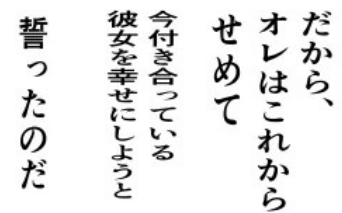 だから、
オレはこれから
せめて
今付き合っている
彼女を幸せにしようと
誓ったのだ